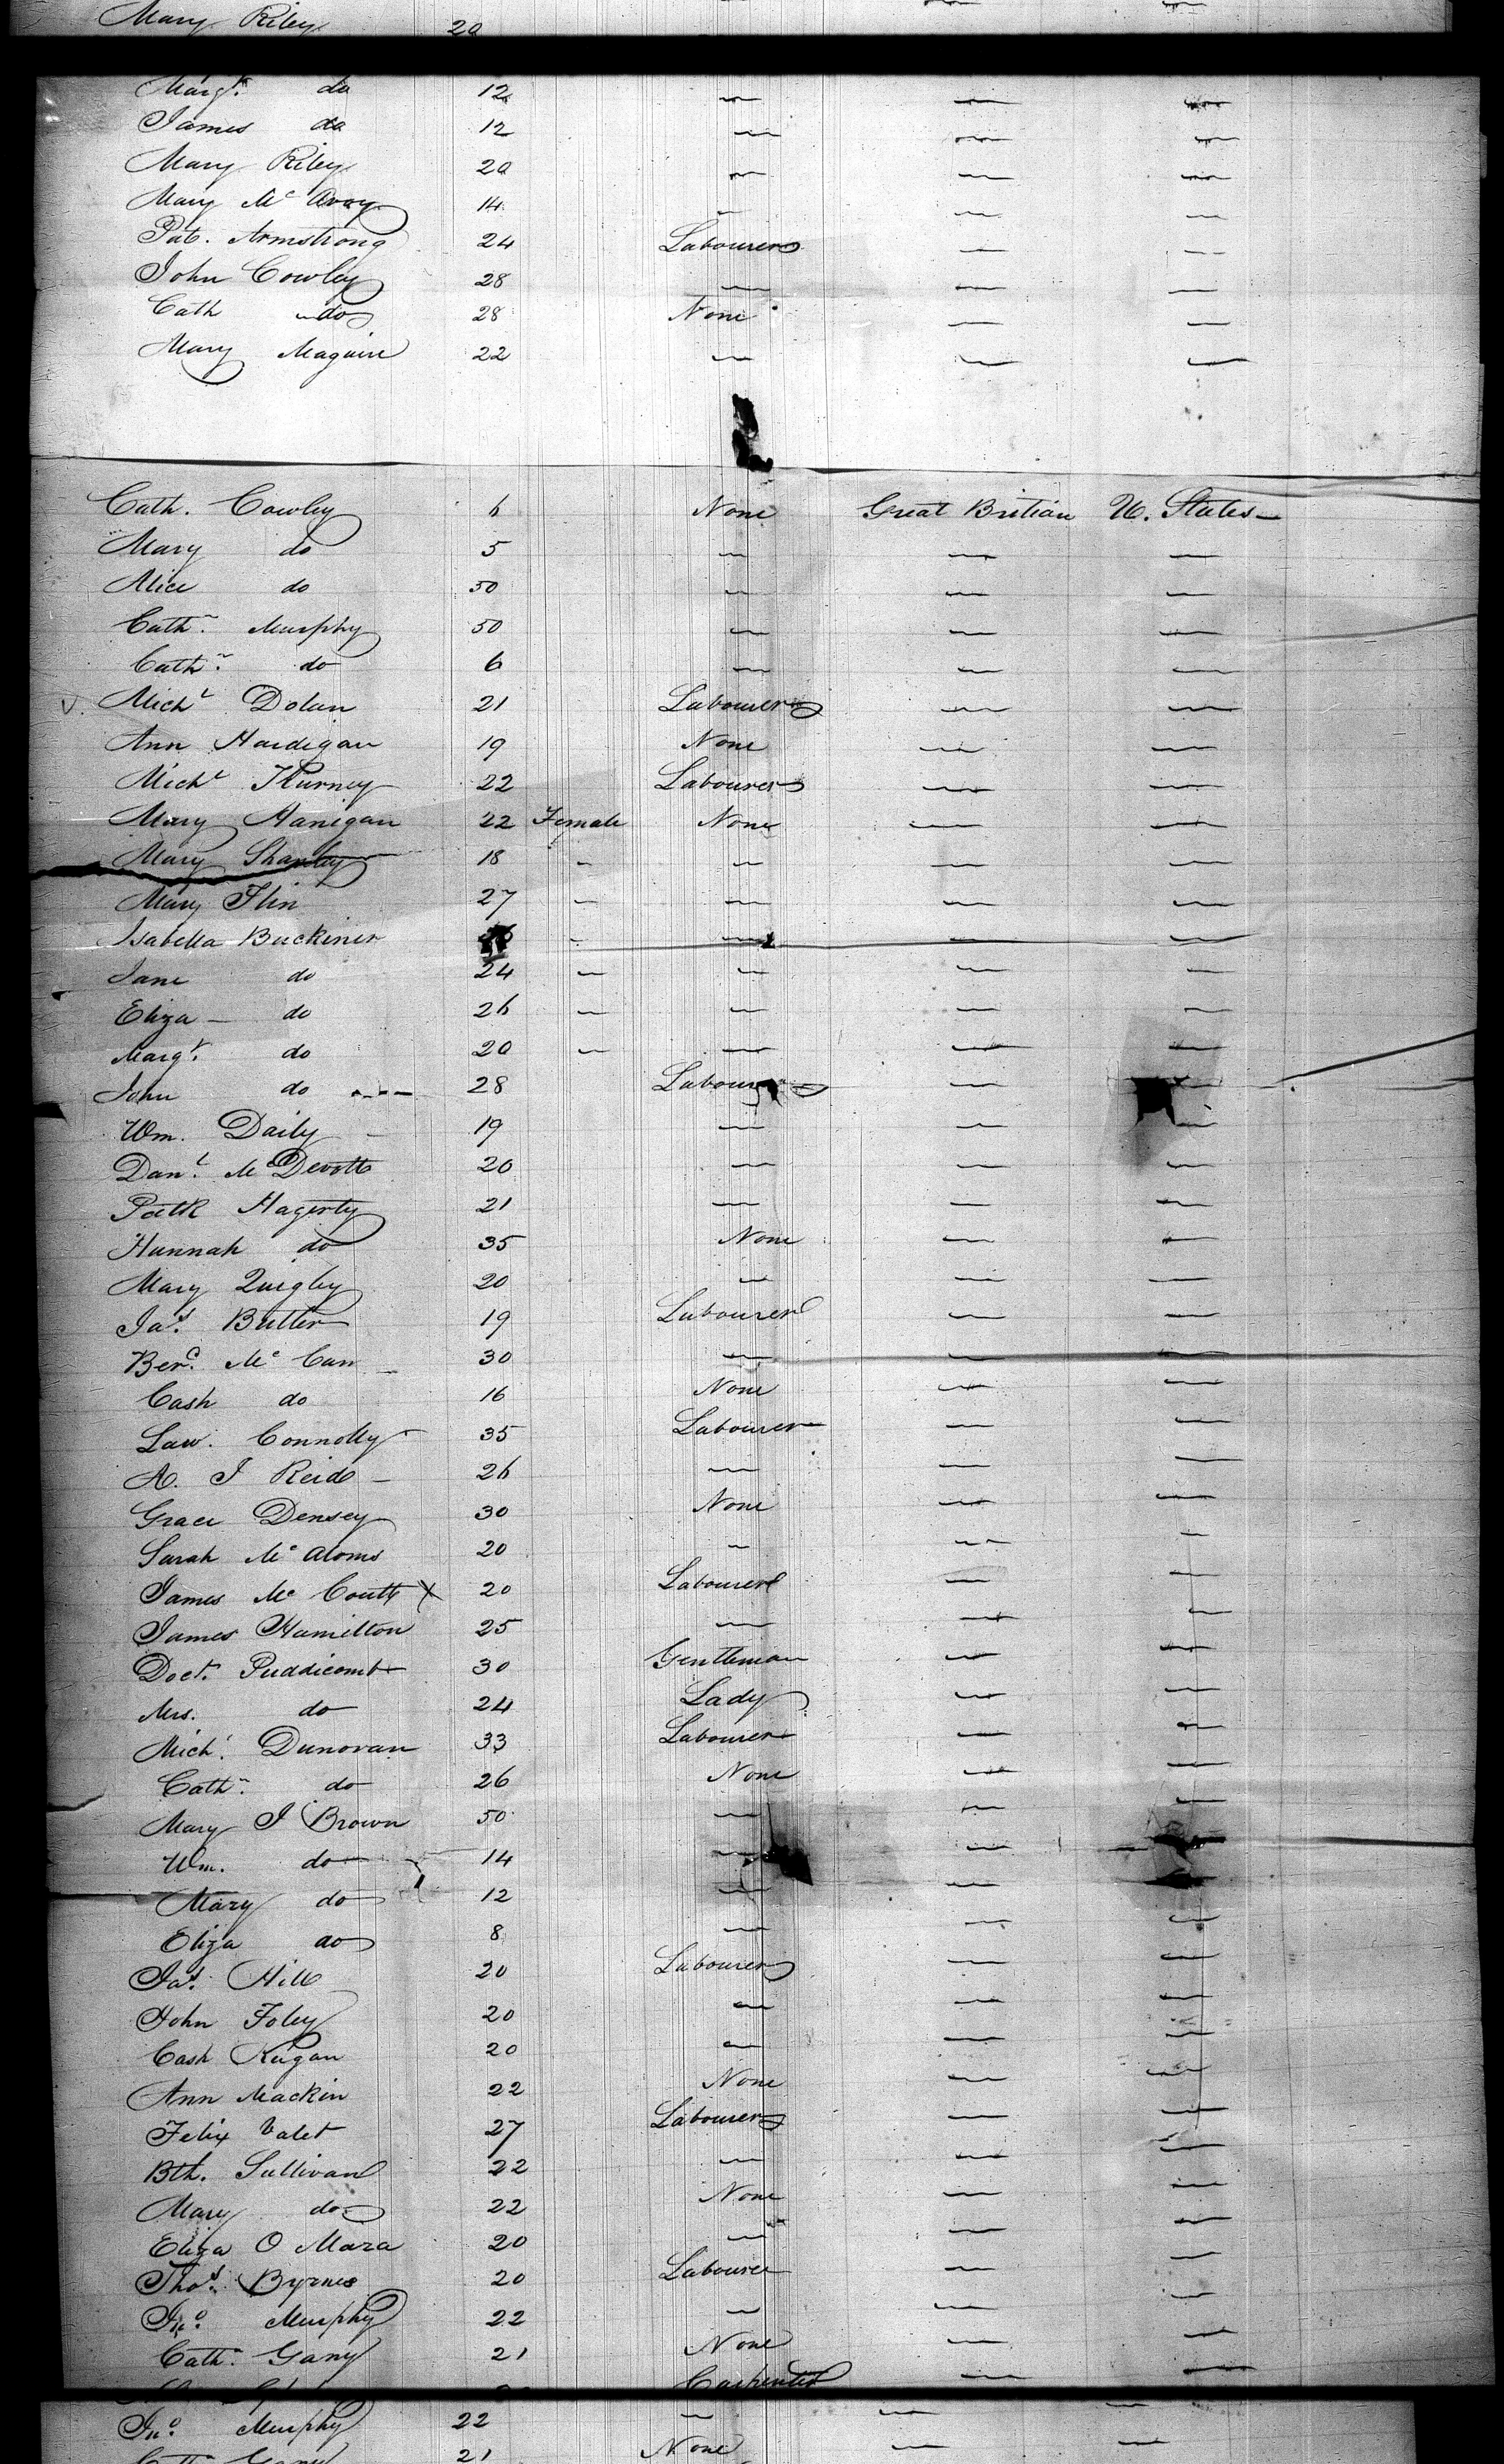 Mary Riley 20
Margt. do 12 — — —
James do 12 — — —
Mary Riley 20 — — —
Mary Mc Avoy 14 — — —
Pat. Armstrong 24 Labourer — —
John Cowley 28 — — —
Cath do 28 None — —
Mary Maguire 22 — — —
Cath. Cowley 6 None Great Britian U. States —
Mary do 5 — — —
Alice do 50 — — —
Cathn. Murphy 50 — — —
Cathn. do 6 — — —
Michl Dolan 21 Labourer — —
Ann Hardigan 19 None — —
Michl Kurney 22 Labourer — —
Mary Hanigan 22 Female None — —
Mary Shanley 18 — — — —
Mary Flin 27 — — — —
Isabella Buckiner — — — —
Jane do 24 — — — —
Eliza — do 26 — — — —
Margt. do 20 — — — —
John do 28 Labourer — —
Wm. Daily — 19 — — —
Danl. McDevott 20 — — —
Patk Hagerty 21 — — —
Hannah do 35 None — —
Mary Quigley 20 — — —
Jas. Butler 19 Labourer — —
Berd. Mc Cann 30 — — —
Cash do 16 None — —
Law. Connolly 35 Labourer — —
A. J Reid — 26 — — —
Grace Densey 30 None — —
Sarah Mc Aloms 20 — — —
James Mc Coutt X 20 Labourer — —
James Hamilton 25 — — —
Doct. Puddicomb 30 Gentleman — —
Mrs. do 24 Lady — —
Michl. Dunovan 33 Labourer — —
Cathn. do 26 None — —
Mary J Brown 50 — — —
Wm. do 14 — — —
Mary do 12 — — —
Eliza do 8 — — —
Jas. Hill 20 Labourer — —
John Foley 20 — — —
Cash Kugan 20 — — —
Ann Mackin 22 None — —
Felix Valet 27 Labourer — —
Bth. Sullivan 22 — — —
Mary do 22 None — —
Eliza O Mara 20 — — —
Thos. Byrnes 20 Labourer — —
Jno. Murphy 22 — — —
Cathn. Gany 21 None — —
Carpenter — —
Jno. Murphy 22 — — —
21 None — —